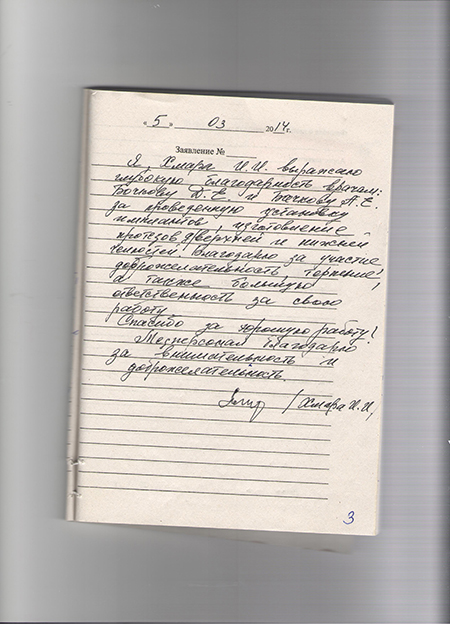 « 5 » 03 2014г.
Заявление №
Я, Хмара И.И. выражаю
глубокую благодарность врачам:
Бочкову Д.Е. и Бочкову А.Е
за проведенную установку
имплантов, изготовление
протезов верхней и нижней
челюстей. Благодарю за участие
доброжелательность, терпение,
а также большую
ответственность за свою
работу
Спасибо за хорошую работу!
Медперсонал благодарю
за внимательность и
доброжелательность.
/Хмара И.И,
3